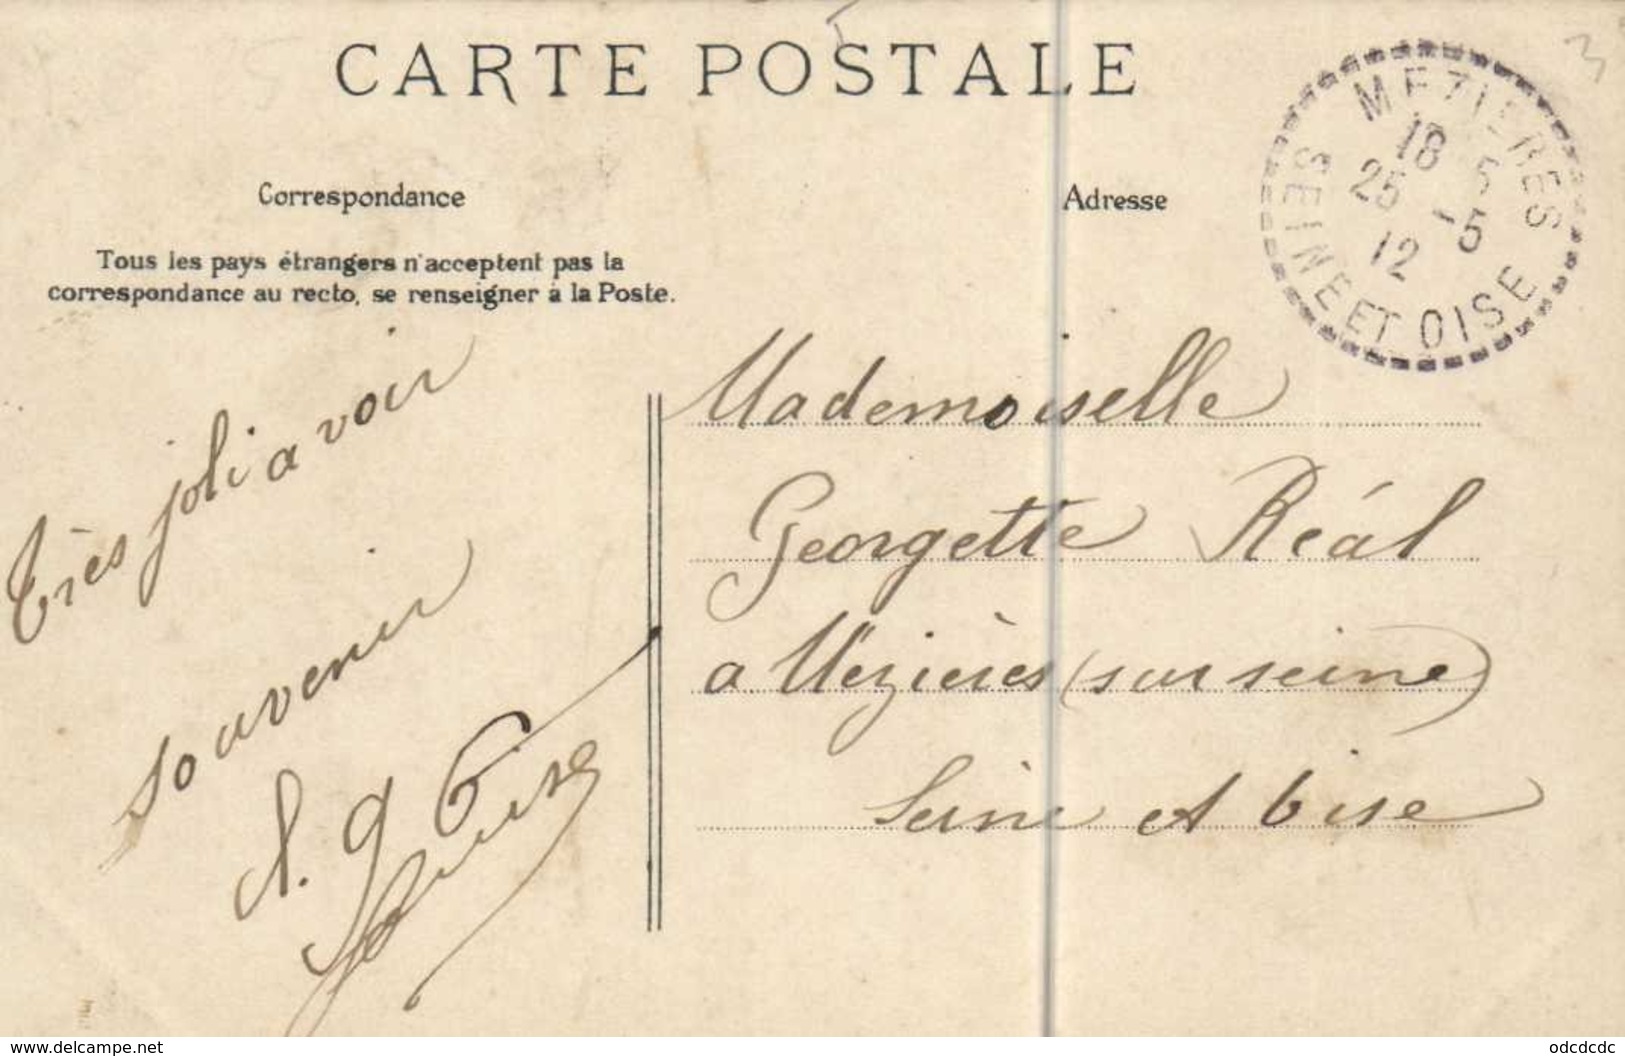 CARTE POSTALE
MEZIERES
18 5
25 -5
12
SEINE ET OISE
3
Correspondance
Adresse
Tous les pays étrangers n'acceptent pas la
correspondance au recto, se renseigner à la Poste.
Très joli a voir
souvenir
Mademoiselle
Georgette Réal
a Mézières (sur seine)
Seine et Oise
www.delcampe.net
odcdcdc